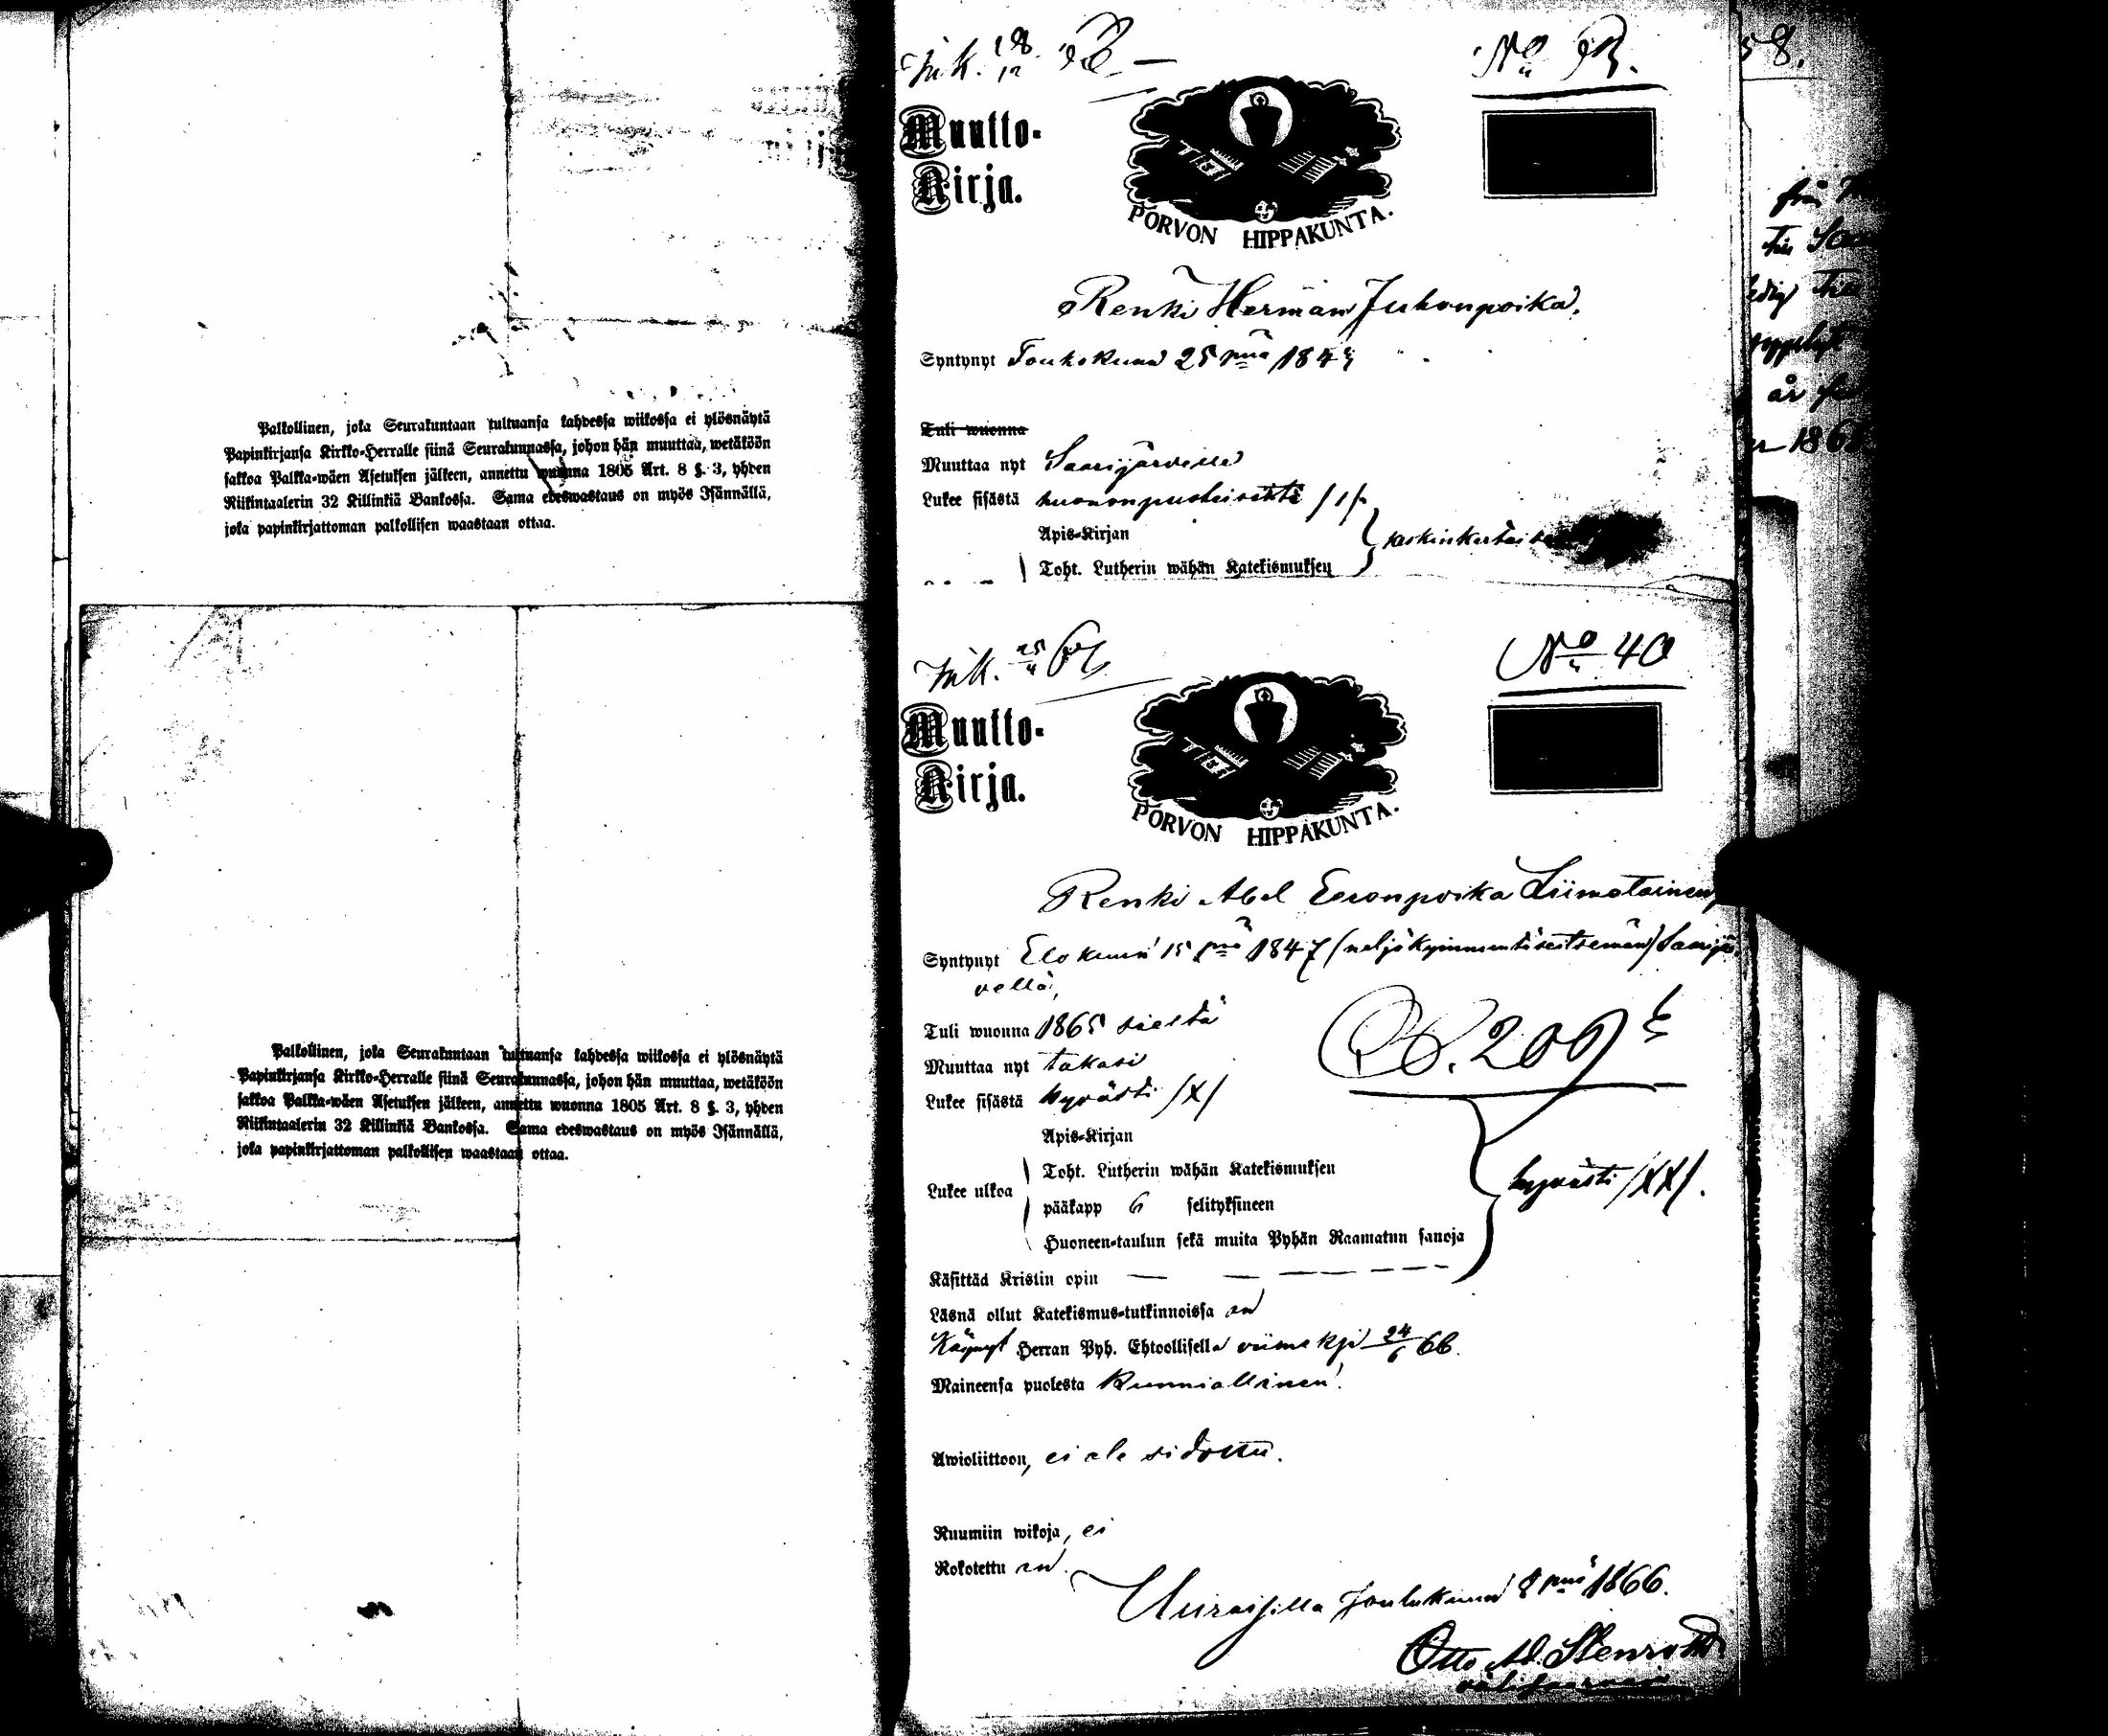 Palkollinen, joka Seurakuntaan tultuansa kahdessa wiikossa ei ylösnäytä
Papinkirjansa Kirkko-Herralle siinä Seurakunnassa, johon hän muuttaa, wetäköön
sakkoa Palkka-wäen Asetuksen jälkeen, annettu wuonna 1805 Art. 8 §. 3, yhden
Riikintaalerin 32 Killinkiä Bankossa. Sama edeswastaus on myös Isännällä,
joka papinkirjattoman palkollisen waastaan ottaa.
Muutto-
Kirja.
PORVON HIPPAKUNTA.
Renki Herman Juhonpoika.
Syntynyt Toukokuun 25 pnä
Tuli wuonna
Muuttaa nyt Saarijärvelle
Lukee sisästä
Apis-Kirjan
Toht. Lutherin wähän Katekismuksen
Palkollinen, joka Seurakuntaan tultuansa kahdessa wiikossa ei ylösnäytä
Papinkirjansa Kirkko-Herralle siinä Seurakunnassa, johon hän muuttaa, wetäköön
sakkoa Palkka-wäen Asetuksen jälkeen, annettu wuonna 1805 Art. 8 §. 3, yhden
Riikintaalerin 32 Killinkiä Bankossa. Sama edeswastaus on myös Isännällä,
joka papinkirjattoman palkollisen waastaan ottaa.
No 40
Muutto-
Kirja.
PORVON HIPPAKUNTA.
Renki Abel Eeronpoika Liimatainen,
Syntynyt Elokuun 15 pnä 1847 (neljäkymmentäseitsemän) Saarijär-
vellä,
Tuli wuonna 1865 sieltä
Muuttaa nyt takasi
Lukee sisästä hyvästi /X/
Apis-Kirjan
Lukee ulkoa
Toht. Lutherin wähän Katekismuksen
pääkapp 6 selityksineen
Huoneen-taulun sekä muita Pyhän Raamatun sanoja
hyvästi /XX/.
Käsittää Kristin opin
Läsnä ollut Katekismus-tutkinnoissa on
Käynyt Herran Pyh. Ehtoollisella viimeksi 24/6 66.
Maineensa puolesta Kunniallinen.
Awioliittoon, ei ole sidottu.
Ruumiin wikoja, ei
Rokotettu on.
Uuraisilla Joulukuun 8 pnä 1866.
Otto Ad. Stenroth